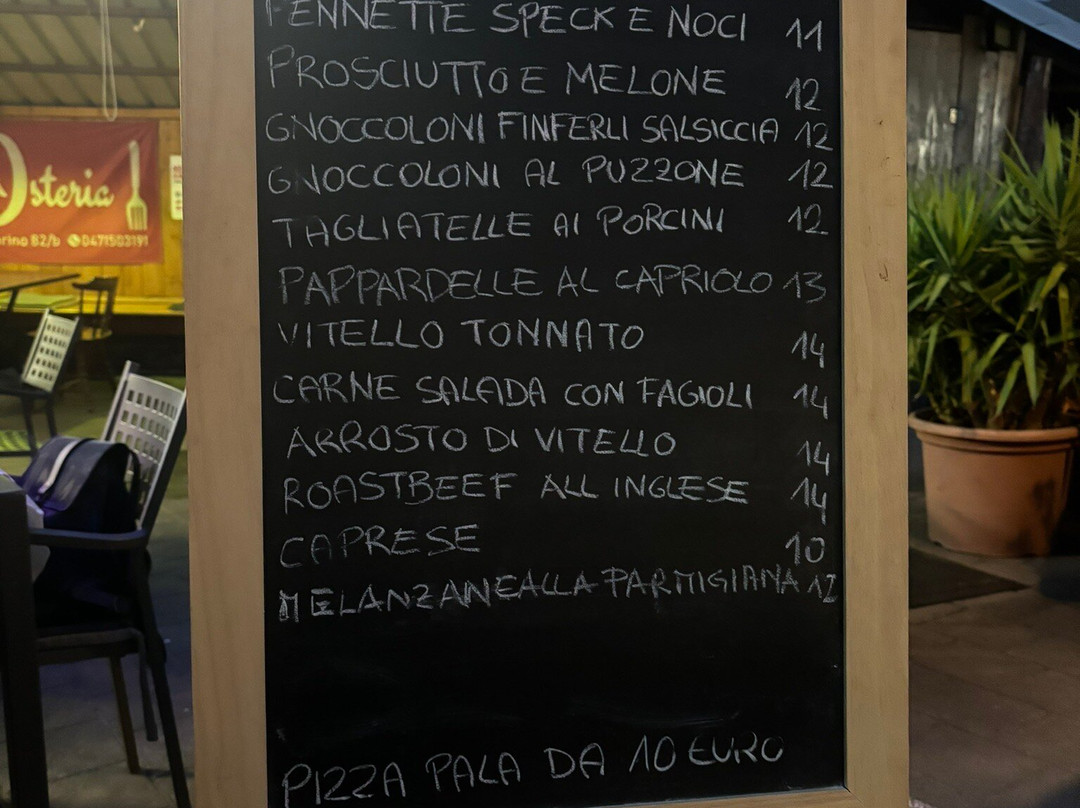 PENNETTE SPECK E NOCI 11
PROSCIUTTO E MELONE 12
GNOCCOLONI FINFERLI SALSICCIA 12
GNOCCOLONI AL PUZZONE 12
TAGLIATELLE AI PORCINI 12
PAPPARDELLE AL CAPRIOLO 13
VITELLO TONNATO 14
CARNE SALADA CON FAGIOLI 14
ARROSTO DI VITELLO 14
ROASTBEEF ALL INGLESE 14
CAPRESE 10
MELANZANE ALLA PARMIGIANA 12
PIZZA PALA DA 10 EURO
Osteria
82/b 0471503191